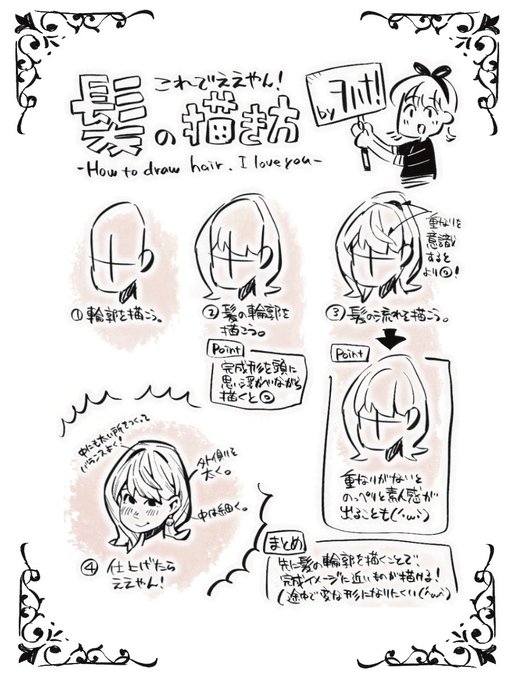 これでええやん!
髪の描き方
-How to draw hair. I love you-
by ヲハナ!
①輪郭を描こう。
②髪の輪郭を
描こう。
Point
完成形を頭に
思い浮かべながら
描くと◎
③髪の流れを描こう。
重なりを
意識
すると
より◎!
Point
重なりがないと
のっぺりと素人感が
出ることも(´・ω・`)
中にも太い所をつくって
バランスよく!
外側を
太く。
中は細く。
④仕上げたら
ええやん!
まとめ
先に髪の輪郭を描くことで、
完成イメージに近いものが描ける!
(途中で変な形になりにくい(´・ω・`)